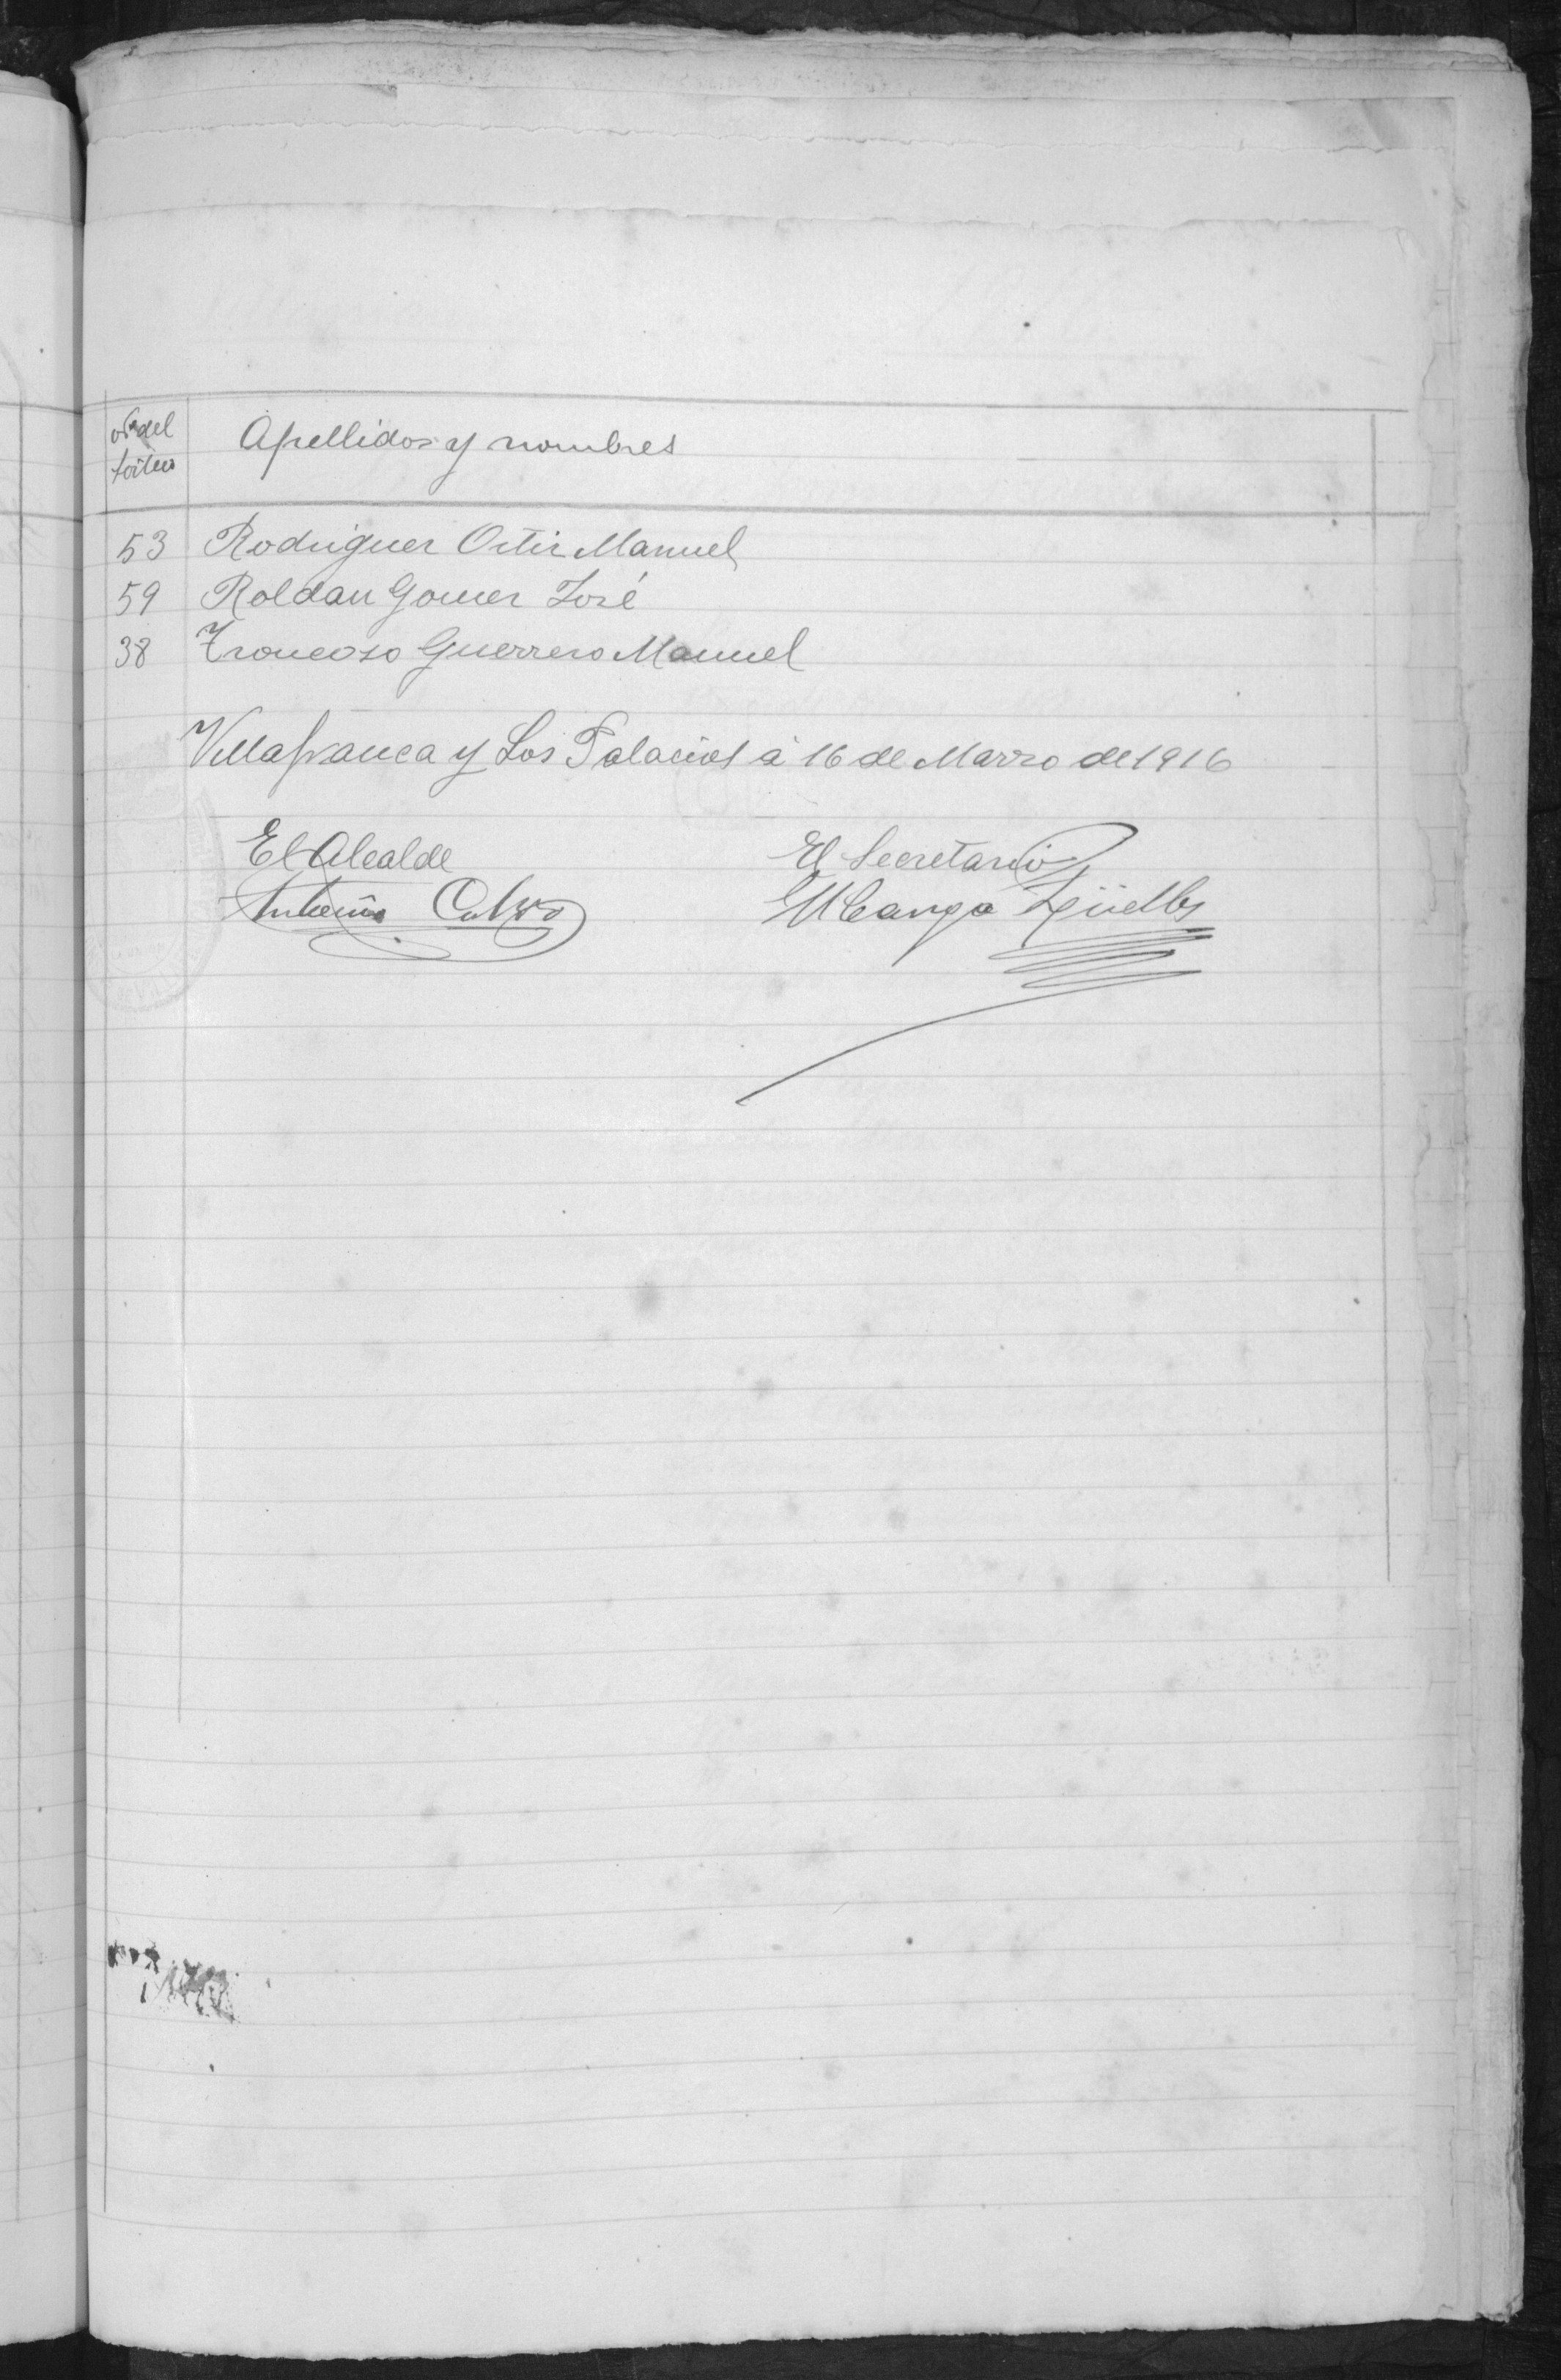 Nº del sorteo
Apellidos y nombres
53 Rodriguez Ortiz Manuel
59 Roldan Gomez José
38 Troncoso Guerrero Manuel
Villafranca y Los Palacios á 16 de Marzo de 1916
El Alcalde
El Secretario
Antonio Calvo